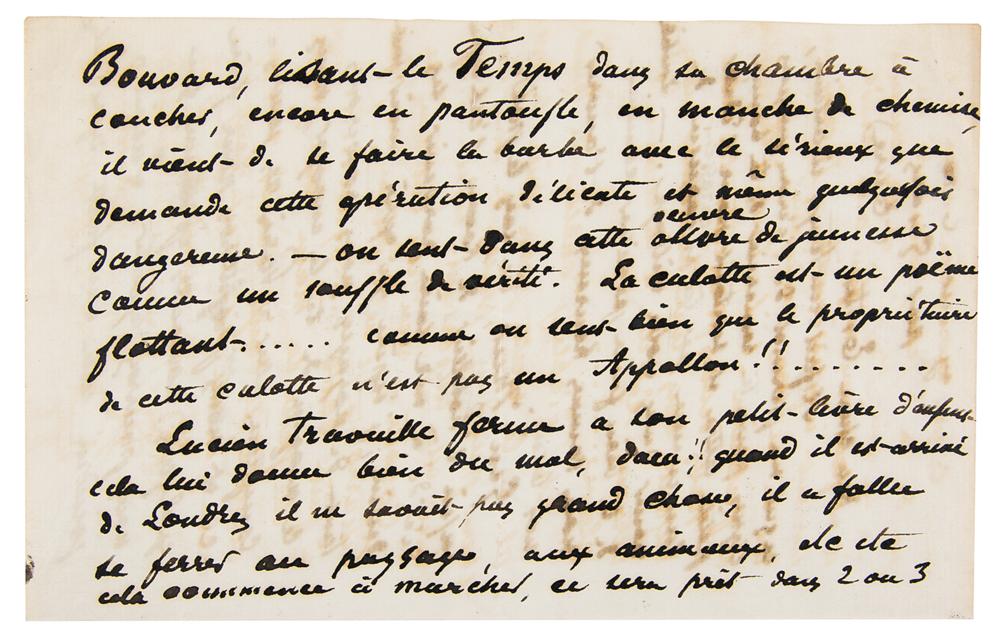 Bouvard, lisant le Temps dans sa chambre à
coucher, encore en pantoufle, en manche de chemise,
il vient de se faire la barbe avec le sérieux que
demande cette opération délicate et même quelquefois
dangereuse. — on sent dans cette oeuvre de jeunesse
comme un souffle de vérité. La culotte est un poëme
flottant..... comme on sent bien que le propriétaire
de cette culotte n'est pas un Appollon!!.........
Lucien Travaille ferme a son petit livre d'enfant
cela lui donne bien du mal, dam!! quand il est arrivé
de Londres il ne savait pas grand chose, il a fallu
se ferrer au paysage, aux animaux, etc etc
cela commence à marcher, ce sera prêt dans 2 ou 3